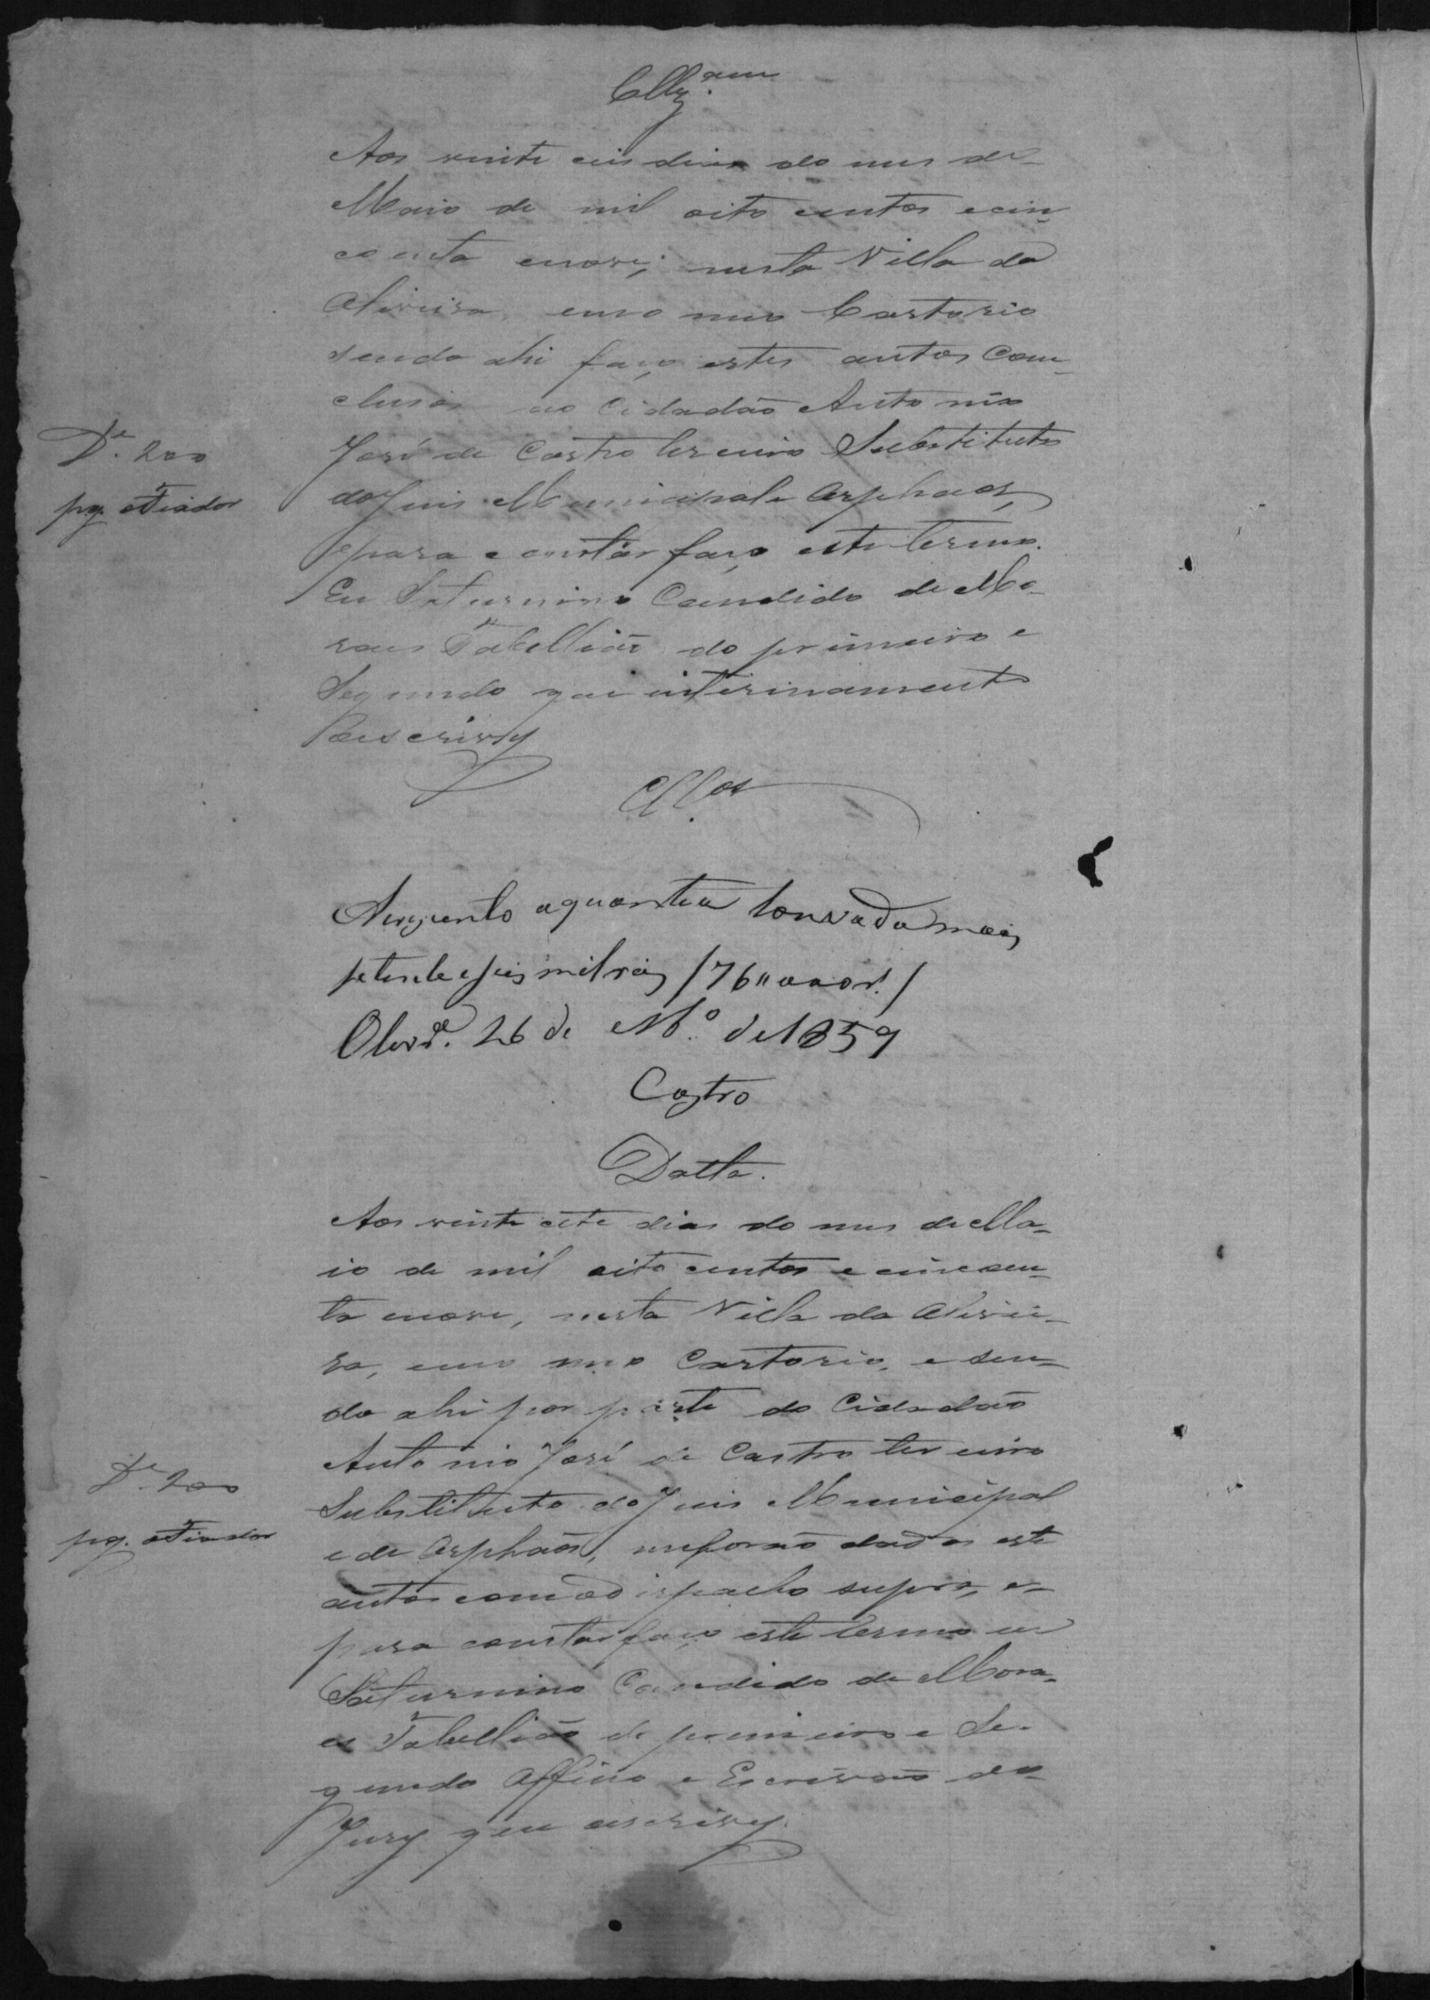 Cllzam
Aos vinte seis dias do mes de
Maio de mil oito centos e cin
coenta enove; nesta Villa da
Oliveira, emo meu Cartorio
sendo ahi faço estes autos Con
clusos ao Cidadão Antonio
José de Castro terceiro Substituto
do Juis Municipal e Orphaos,
epara constar faço este termo.
Eu Saturnino Candido de Mo
raes Tabellião do primeiro e
Segundo que interinamente
o escrivy
Cllos
Dr. 200
pg. o Fiador
Augmento aquantia louvada mais
setenta eseis mil reis /76"000 rs./
Olivra. 26 de Mo. de 1859
Castro
Datta.
Aos vinte sete dias do mes de Ma
io de mil oito centos e cincoen
ta enove, nesta Villa da Olivei
ra, emo meo Cartorio, e sen
do ahi por parte do Cidadão
Antonio José de Castro terceiro
Substituto do Juis Municipal
e de Orphaõs, meforaõ dados este
autos como dispacho supra, e
para constar faço este termo eu
Saturnino Candido de Mora
es Tabellião do primeiro e Se
gundo Officio e Escrivaõ do
Jury que escrivy.
Dr. 200
pg. o Fiador